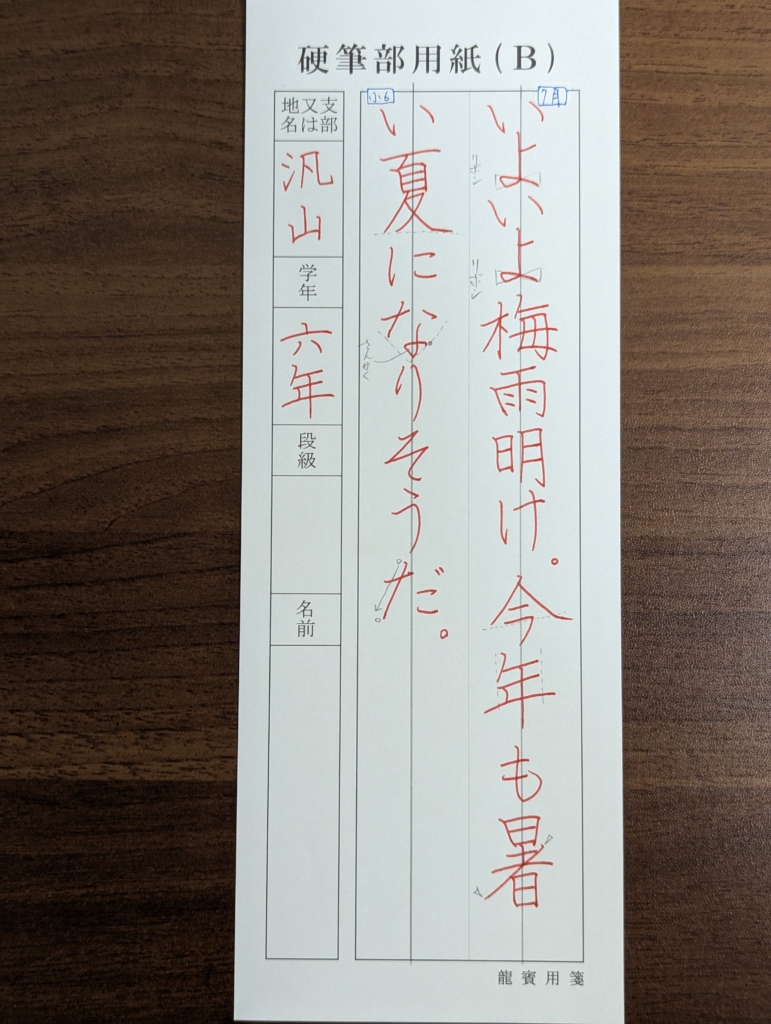 硬筆部用紙(B)
7月
いよいよ梅雨明け。今年も暑
リボン
リボン
小6
い夏になりそうだ。
支部
又は
地名
汎山
学年
六年
段級
名前
龍賓用箋